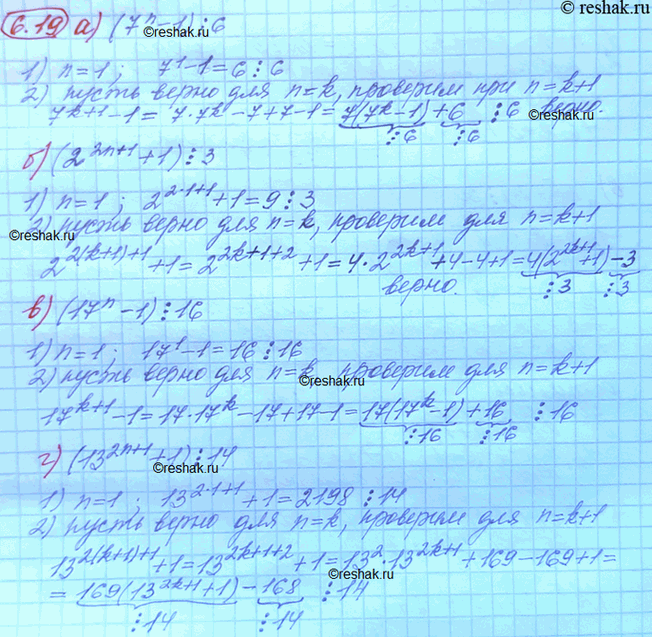 © reshak.ru
6.19 а) (7ⁿ-1)⋮6
1) n=1; 7¹-1=6⋮6
2) пусть верно для n=k, проверим при n=k+1
7^{k+1}-1=7·7^k-7+7-1=7(7^k-1)+6 ⋮6 верно.
⋮6 ⋮6
б) (2^{2n+1}+1)⋮3
1) n=1; 2^{2·1+1}+1=9⋮3
2) пусть верно для n=k, проверим для n=k+1
2^{2(k+1)+1}+1=2^{2k+1+2}+1=4·2^{2k+1}+4-4+1=4(2^{2k+1}+1)-3
верно. ⋮3 ⋮3
в) (17ⁿ-1)⋮16
1) n=1; 17¹-1=16⋮16
2) пусть верно для n=k проверим для n=k+1
17^{k+1}-1=17·17^k-17+17-1=17(17^k-1)+16 ⋮16
⋮16 ⋮16
г) (13^{2n+1}+1)⋮14
1) n=1; 13^{2·1+1}+1=2198⋮14
2) пусть верно для n=k, проверим для n=k+1
13^{2(k+1)+1}+1=13^{2k+1+2}+1=13²·13^{2k+1}+169-169+1=
=169(13^{2k+1}+1)-168 ⋮14
⋮14 ⋮14